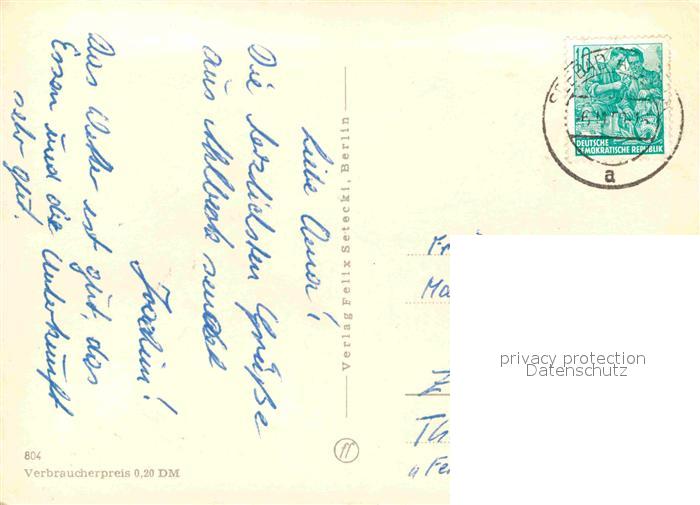 Liebe Oma!
Die herzlichsten Grüße
aus Ahlbeck sendet
Joachim!
Das Wetter ist gut, das
Essen und die Unterkunft
sehr gut.
Verlag Felix Setecki, Berlin
804
Verbraucherpreis 0,20 DM
10
DEUTSCHE
DEMOKRATISCHE REPUBLIK
SEEBAD
a
Th
u Fe
privacy protection
Datenschutz